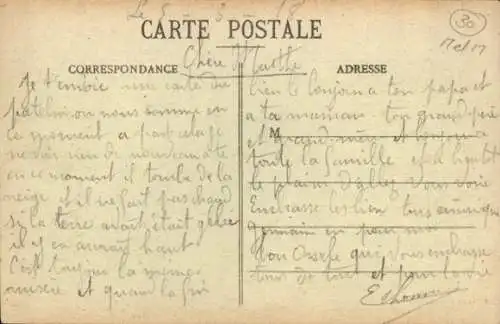 Le 5 3 18
30
CARTE POSTALE
CORRESPONDANCE
ADRESSE
M
Chère Marthe
Je t'envoie une carte du
patelin ou nous somme en
ce moment a part cela je
ne voit rien de nouveau a te
en ce moment il tombe de la
neige et il ne fait pas chaud
si la terre avait était gelée
il y en aurait haut
C'est toujour la meme
misère et quand la fin
bien le bonjour a ton papa et
a ta maman ton grand père
et grand mère et bonjour a
toute la famille et
le plaisir d'allez vous voir
Embrasse les bien tous ainsi que
Germaine en pour moi
Ton qui vous embrasse
tous de et pour la vie